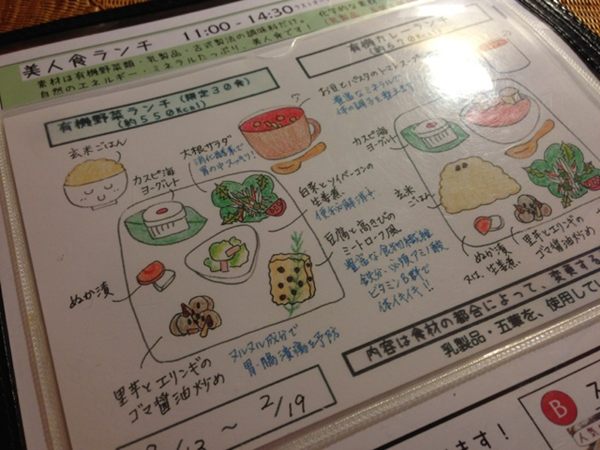 美人食ランチ 11:00 - 14:30
素材は有機野菜類・乳製品・古式製法の調味料だけ。
自然のエネルギー・ミネラルたっぷり、美人食です！
有機野菜ランチ (限定30食)
(約550kcal)
有機カレーランチ
(約570kcal)
お豆とパスタのトマトスープ
豊富なミネラルで
体の調子を整えます
玄米ごはん
カスピ海
ヨーグルト
大根サラダ
消化酵素で
胃の中スッキリ！
白菜とソイベーコンの
生姜煮
便秘解消に
豆腐と高きびの
ミートローフ風
豊富な食物繊維
鉄分・必須アミノ酸
ビタミンB群で
体イキイキ！
ぬか漬
里芋とエリンギの
ゴマ醤油炒め
ヌルヌル成分で
胃腸潰瘍を予防
カスピ海
ヨーグルト
玄米
ごはん
ぬか漬
又は、生姜煮
里芋とエリンギの
ゴマ醤油炒め
～ 2/19
内容は食材の都合によって、変更する
乳製品・五葷を、使用してい
B
ます！
人気